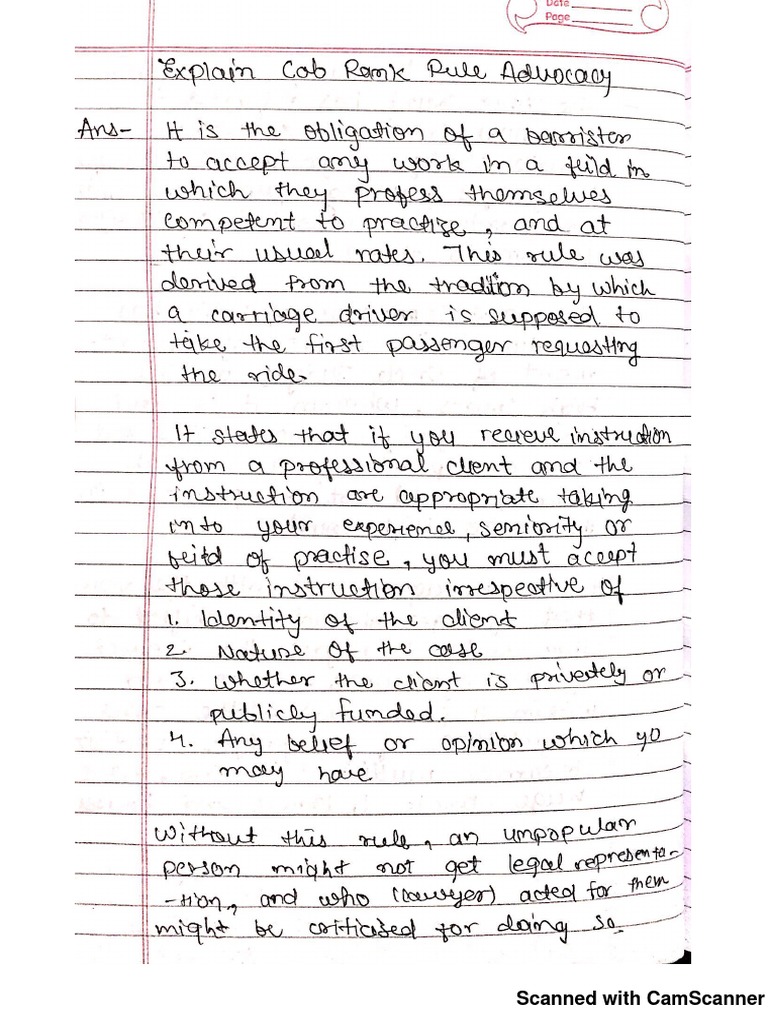 Date
Page
Explain Cab Rank Rule Advocacy
Ans- It is the obligation of a barrister
to accept any work in a feild in
which they profess themselves
competent to practize, and at
their usual rates. This rule was
derived from the tradition by which
a carriage driver is supposed to
take the first passenger requesting
the ride.
It states that if you recieve instruction
from a professional client and the
instruction are appropriate taking
into your experience, seniority or
feild of practise, you must accept
those instruction irrespective of
1. Identity of the client
2. Nature of the case
3. Whether the client is privately or
publicly funded.
4. Any belief or opinion which yo
may have
Without this rule, an unpopular
person might not get legal representa-
-tion, and who (lawyer) acted for them
might be criticised for doing so.
Scanned with CamScanner